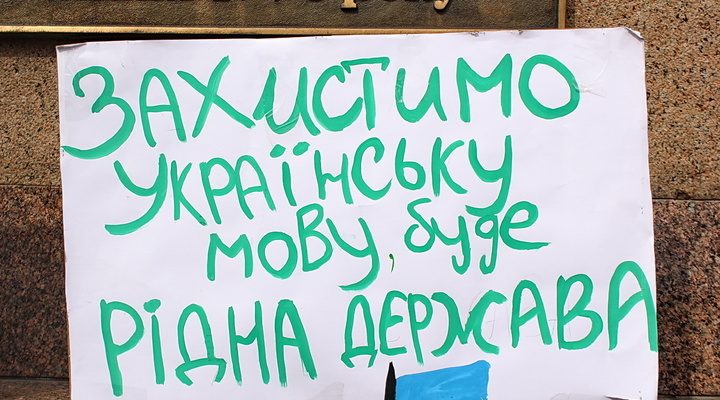 ЗАХИСТИМО
УКРАЇНСЬКУ
МОВУ, буде
РІДНА ДЕРЖАВА